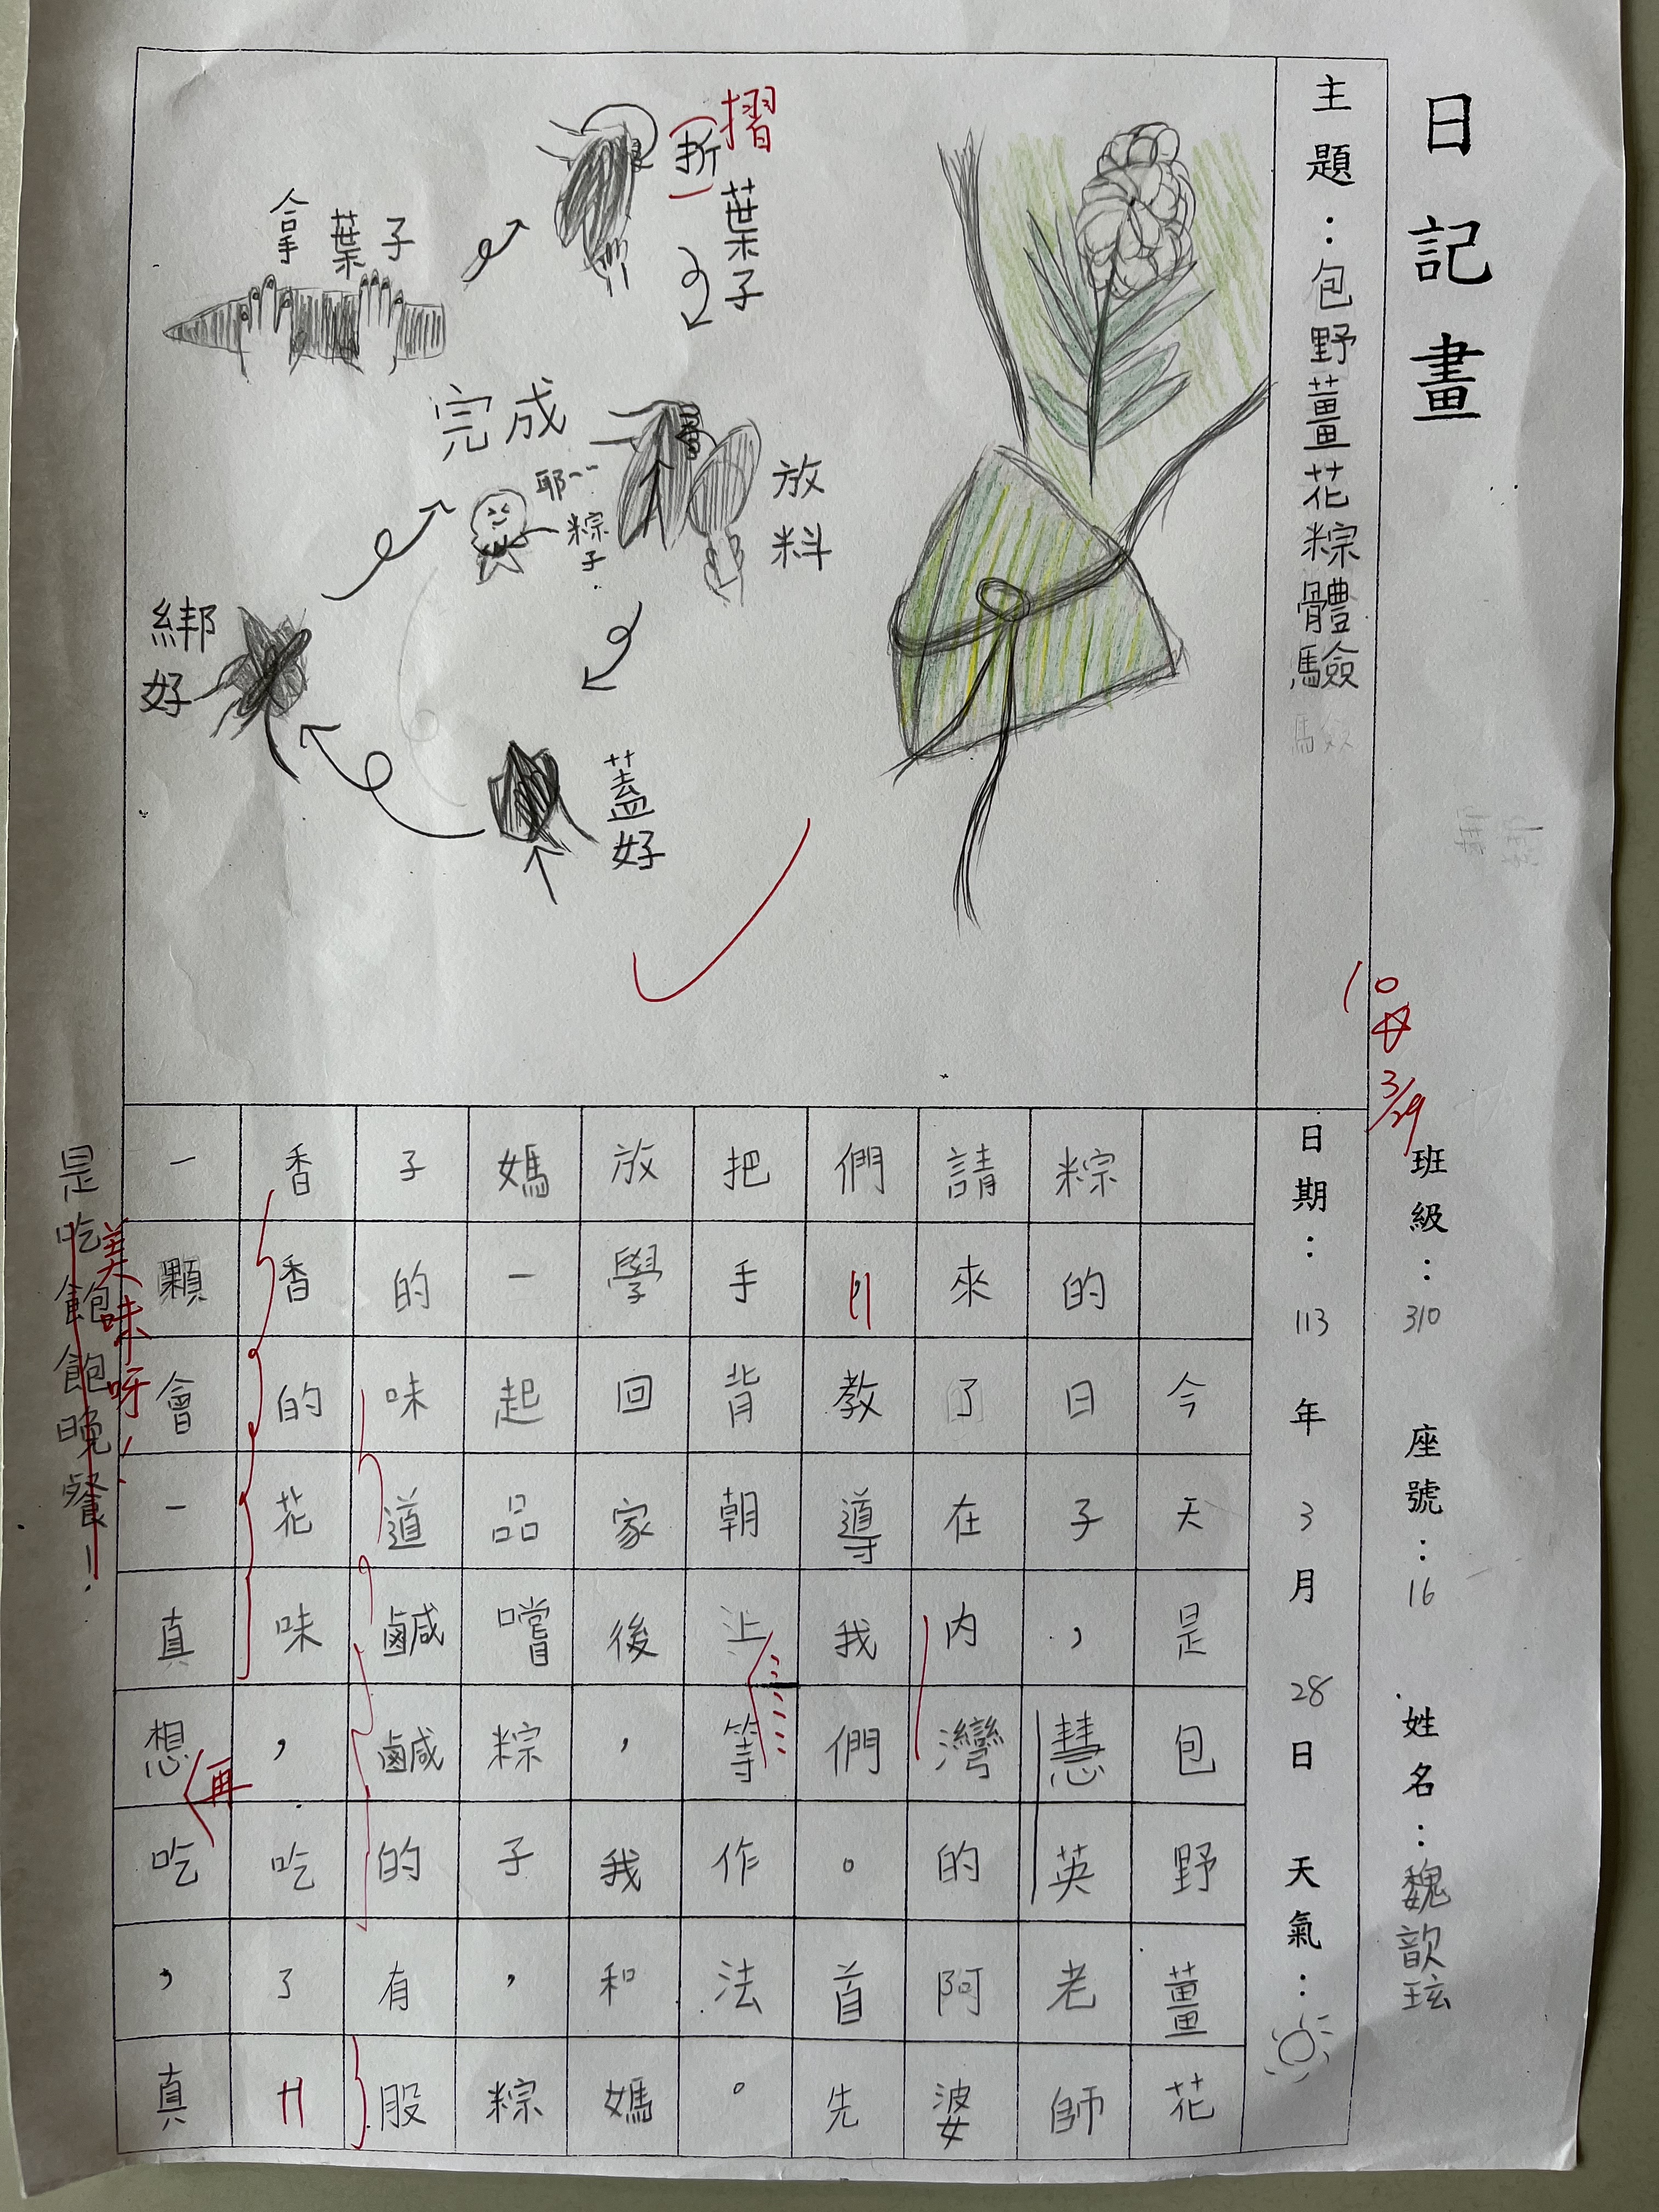 日記畫
班級：310 座號：16 姓名：魏歆玹
10
3/29
主題：包野薑花粽體驗
日期：113年3月28日 天氣：
拿葉子
折
摺
葉子
放料
蓋好
綁好
完成
耶~~
粽子
今天是包野薑花
粽的日子，慧英老師
請來了在內灣的阿婆
們教導我們。首先
把手背朝上等作法。
放學回家後，我和媽
媽一起品嚐粽子，粽
子的味道鹹鹹的有股
香香的花味，吃了
一顆會一真想吃，真
再
美味呀！
是吃飽飽晚餐！